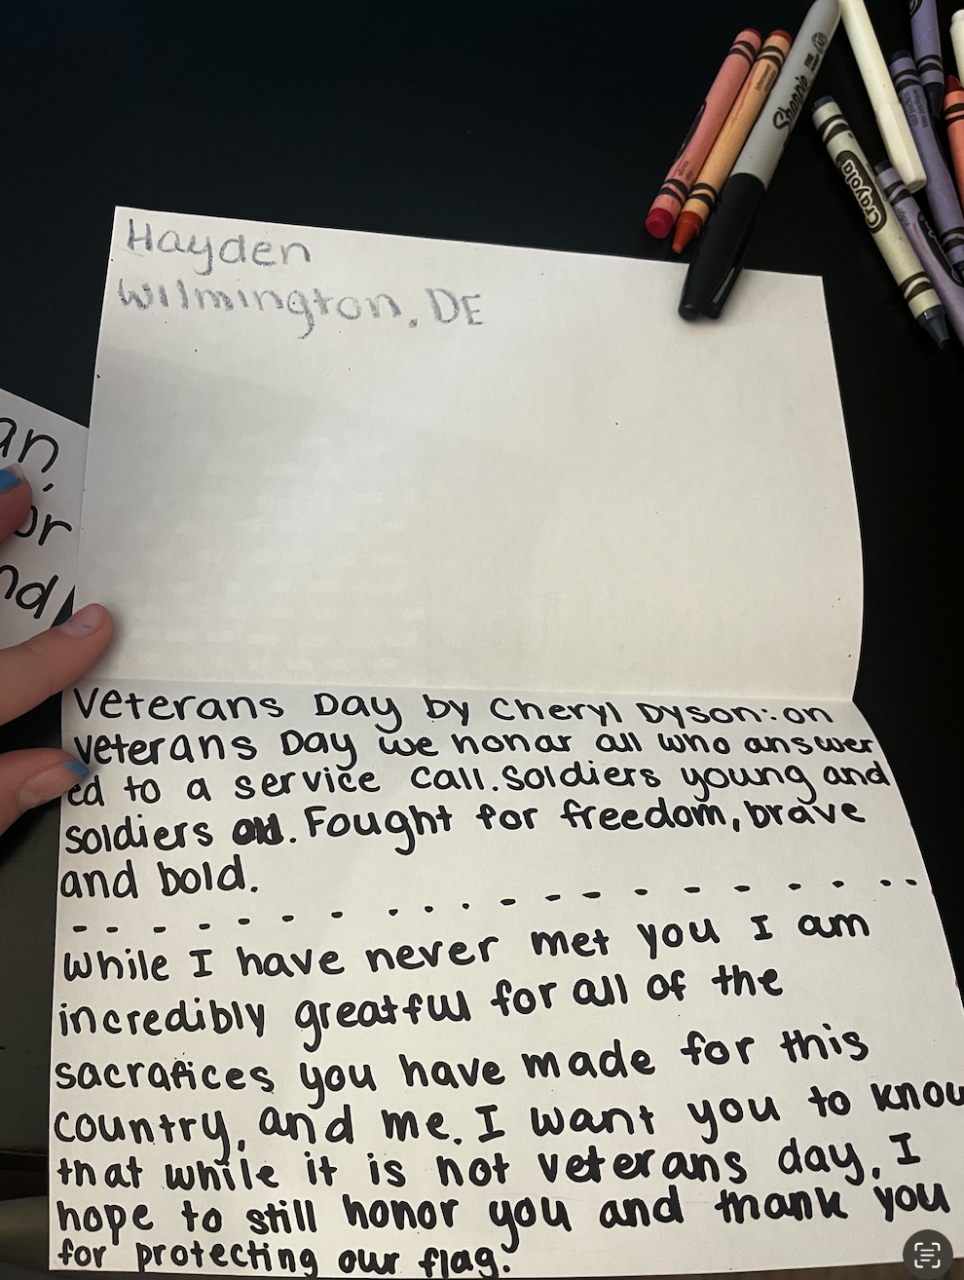 Sharpie
Crayola
Hayden
Wilmington, DE
an,
or
nd
Veterans Day by Cheryl Dyson: on
Veterans Day we honar all who answer
ed to a service call. Soldiers young and
soldiers old. Fought for freedom, brave
and bold.
While I have never met you I am
incredibly greatful for all of the
sacrafices you have made for this
country, and me. I want you to know
that while it is not veterans day, I
hope to still honor you and thank you
for protecting our flag.